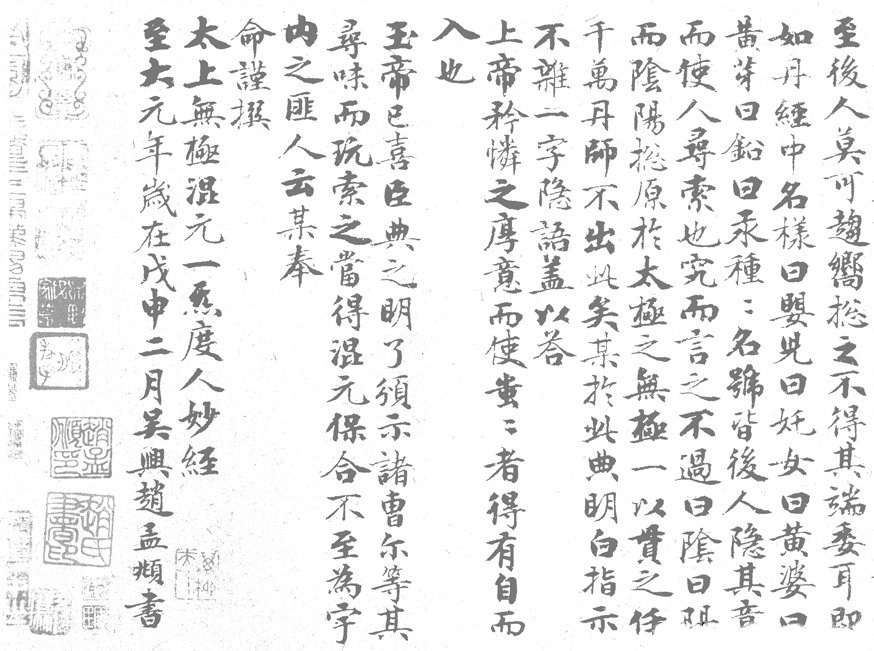 至後人莫可趨嚮捴之不得其端委耳即
如丹經中名樣曰嬰兒曰奼女曰黃婆曰
黃芽曰鉛曰汞種〻名號皆後人隱其音
而使人尋索也究而言之不過曰陰曰陽
而陰陽捴原於太極之無極一以貫之任
千萬丹師不出此矣某於此典明白指示
不雜一字隱語蓋以答
上帝矜憐之厚意而使蚩〻者得有自而
入也
玉帝已喜臣典之明了頒示諸曹尔等其
尋味而玩索之當得混元保合不至為字
內之匪人云某奉
命謹撰
太上無極混元一炁度人妙經
至大元年歲在戊申二月吳興趙孟頫書
趙孟頫印
趙氏書印